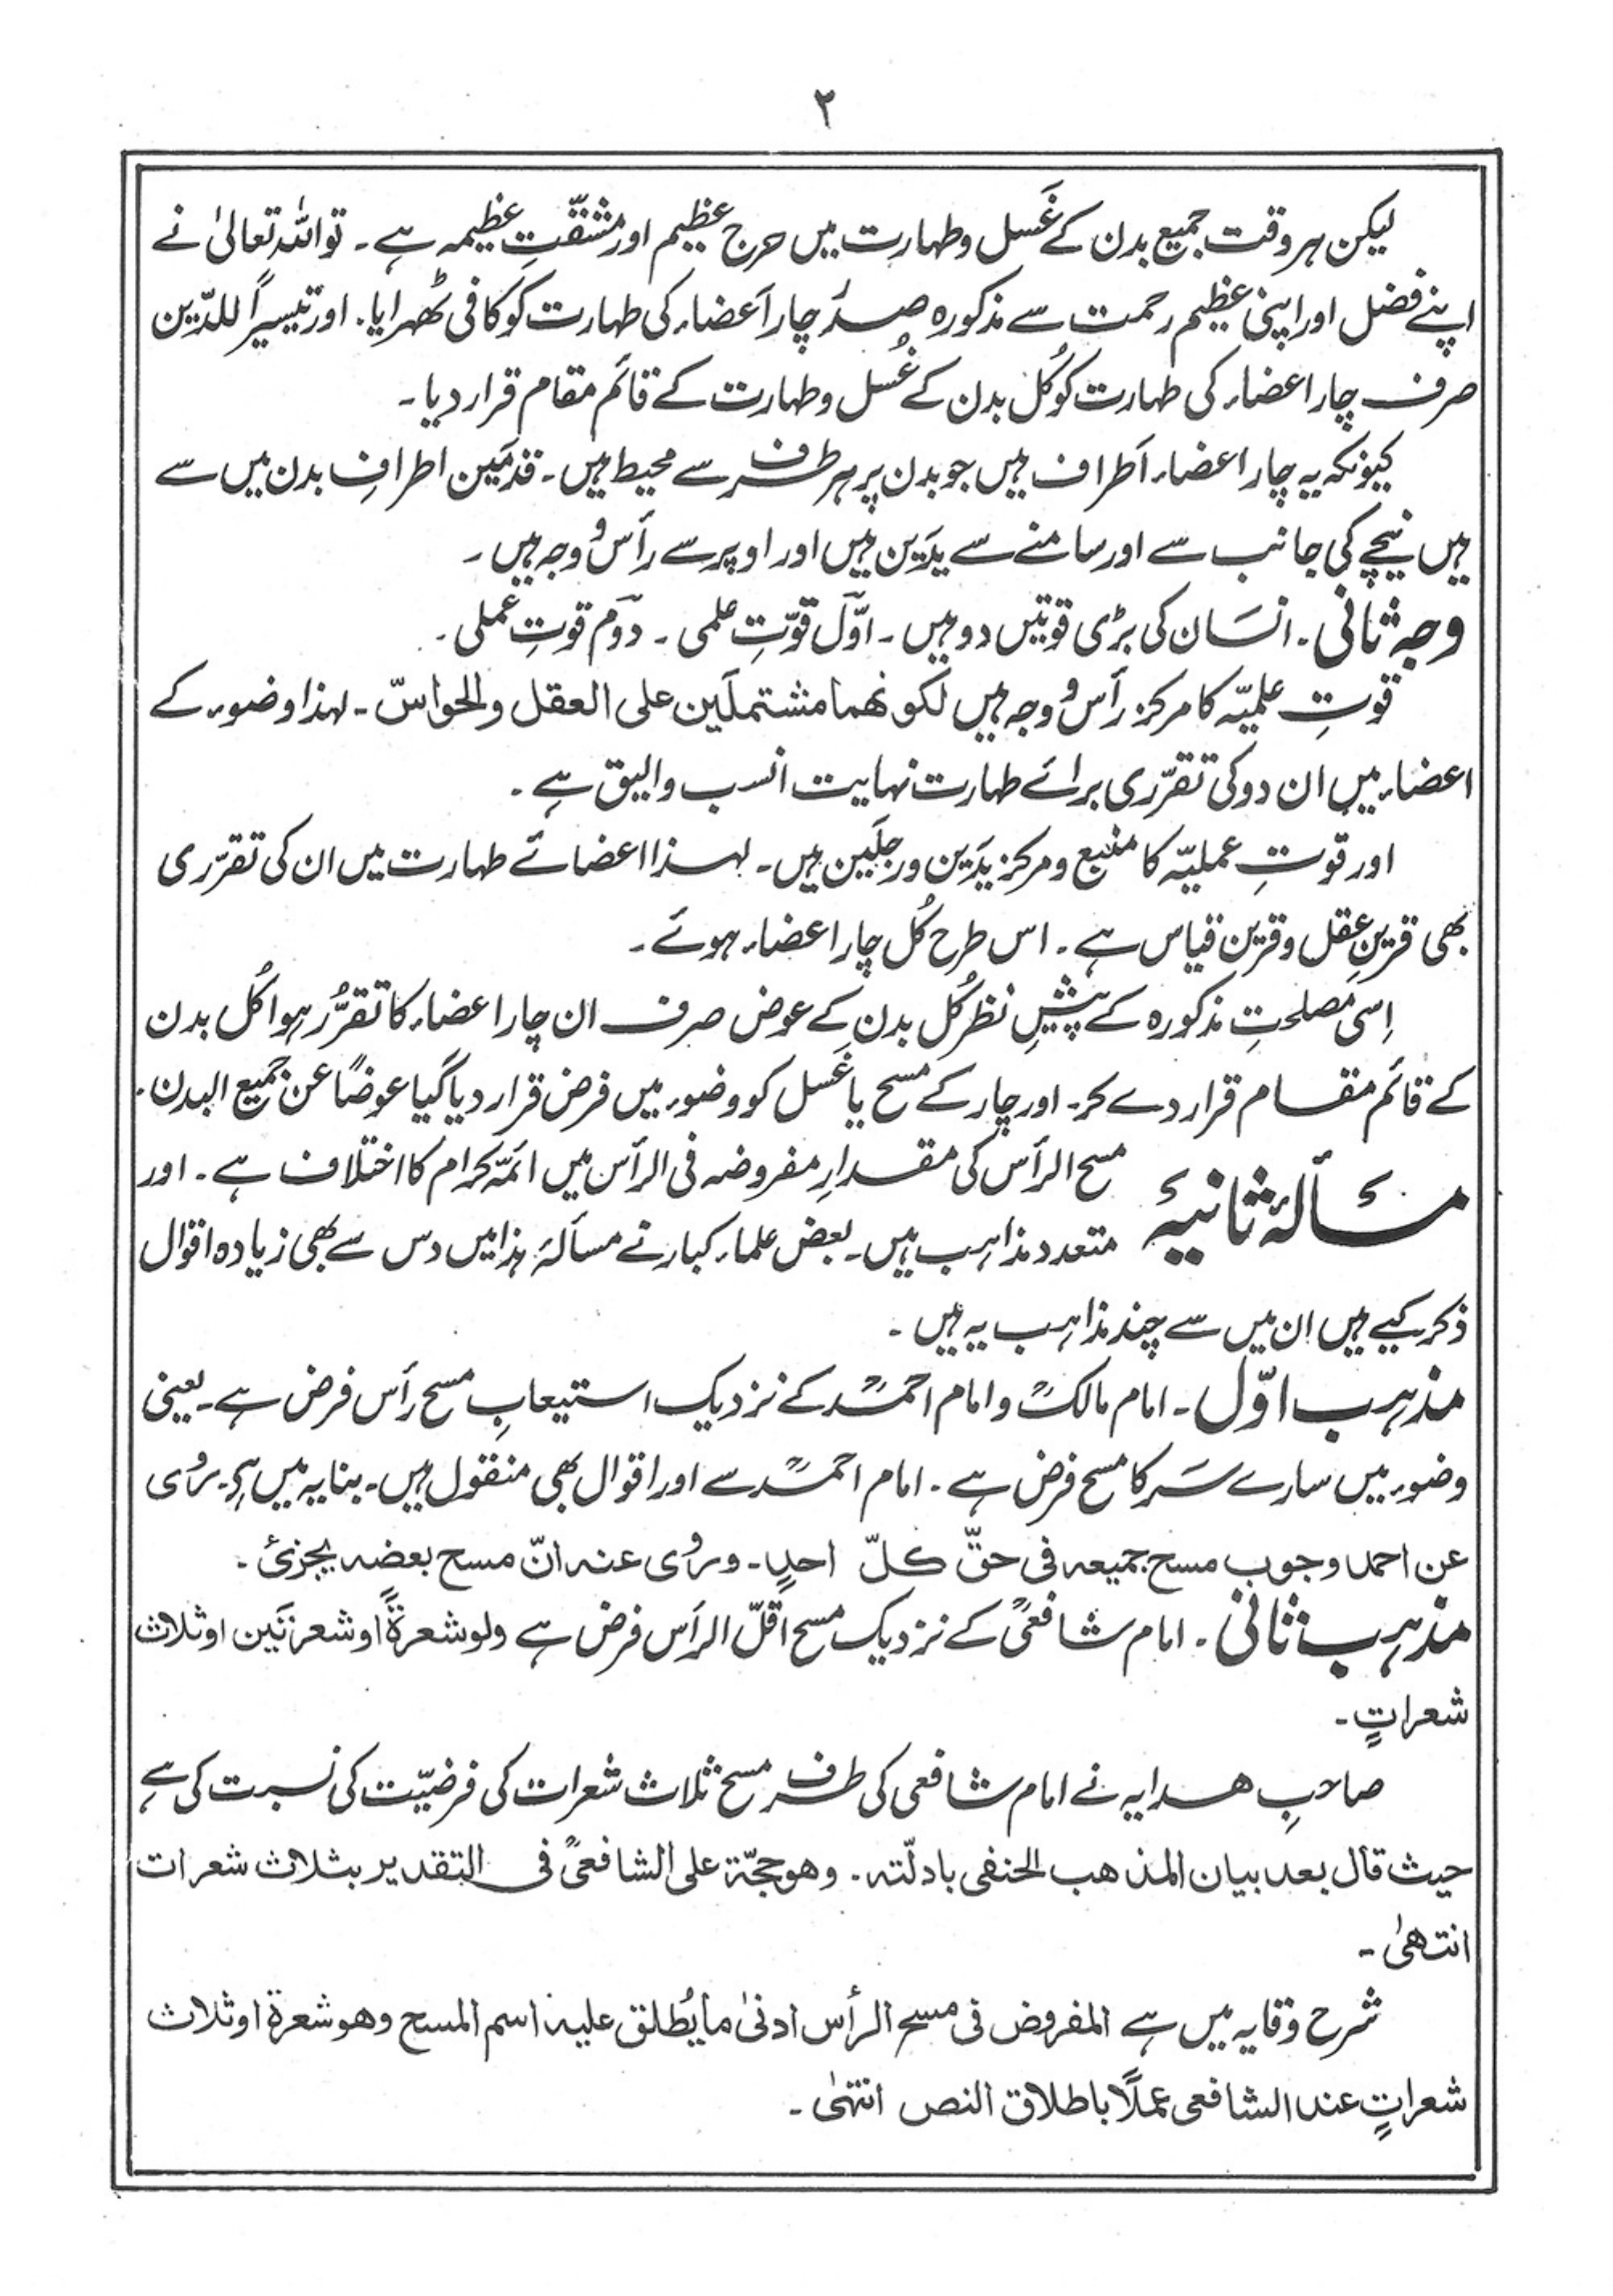 ۲
لیکن ہر وقت جمیع بدن کے غَسل و طہارت میں حرج عظیم اور مشقّتِ عظیمہ ہے ۔ تو اللہ تعالیٰ نے
اپنے فضل اور اپنی عظیم رحمت سے مذکورہ صدر چار اَعضاء کی طہارت کو کافی ٹھہرایا ۔ اور تیسیراً للدّین
صرف چار اعضاء کی طہارت کو کُل بدن کے غُسل و طہارت کے قائم مقام قرار دیا ۔
کیونکہ یہ چار اعضاء اَطراف ہیں جو بدن پر ہر طرف سے محیط ہیں ۔ قدمَین اطرافِ بدن میں سے
ہیں نیچے کی جانب سے اور سامنے سے یدَین ہیں اور اوپر سے رأس و وجہ ہیں ۔
وجہ ثانی ۔ انسَان کی بڑی قوتیں دو ہیں ۔ اوّل قوّتِ علمی ۔ دوم قوتِ عملی ۔
قوتِ علمیّہ کا مرکز رأس و وجہ ہیں لکونھما مشتملَین علی العقل والحواسّ ۔ لہذا وضوء کے
اعضاء میں ان دو کی تقرّری برائے طہارت نہایت انسب و الیق ہے ۔
اور قوتِ عملیّہ کا منبع و مرکز یدَین و رجلَین ہیں ۔ لہذا اعضائے طہارت میں ان کی تقرّری
بھی قرینِ عقل و قرین قیاس ہے ۔ اس طرح کُل چار اعضاء ہوئے ۔
اِسی مصلحتِ مذکورہ کے پیشِ نظر کُل بدن کے عوض صرف ان چار اعضاء کا تقرُّر ہوا کُل بدن
کے قائم مقام قرار دے کر ۔ اور چار کے مسح یا غَسل کو وضوء میں فرض قرار دیا گیا عوضًا عن جمیع البدن ۔
مسألۂ ثانیہ مسح الرأس کی مقدارِ مفروضہ فی الرأس میں ائمّہ کرام کا اختلاف ہے ۔ اور
متعدد مذاہب ہیں ۔ بعض علماء کبار نے مسألۂ ہذا میں دس سے بھی زیادہ اقوال
ذکر کیے ہیں ان میں سے چند مذاہب یہ ہیں ۔
مذہب اوّل ۔ امام مالکؒ و امام احمدؒ کے نزدیک استیعابِ مسح رأس فرض ہے ۔ یعنی
وضوء میں سارے سَر کا مسح فرض ہے ۔ امام احمدؒ سے اور اقوال بھی منقول ہیں ۔ بنایہ میں ہے ۔ رُوی
عن احمد وجوب مسح جمیعہ فی حقّ کلّ احدٍ ۔ ورُوی عنہ انّ مسح بعضہ یجزئ ۔
مذہب ثانی ۔ امام شافعیؒ کے نزدیک مسح اَقلّ الرأس فرض ہے ولو شعرۃً او شعرتَین او ثلاث
شعراتٍ ۔
صاحبِ ھدایہ نے امام شافعی کی طرف مسح ثلاث شعرات کی فرضیّت کی نسبت کی ہے
حیث قال بعد بیان المذھب الحنفی بادلّتہ ۔ وھو حجّۃ علی الشافعیؒ فی التقدیر بثلاث شعرات
انتھیٰ ۔
شرح وقایہ میں ہے المفروض فی مسح الرأس ادنیٰ ما یُطلق علیہ اسم المسح وھو شعرۃ او ثلاث
شعراتٍ عند الشافعی عملًا باطلاق النص انتہیٰ ۔